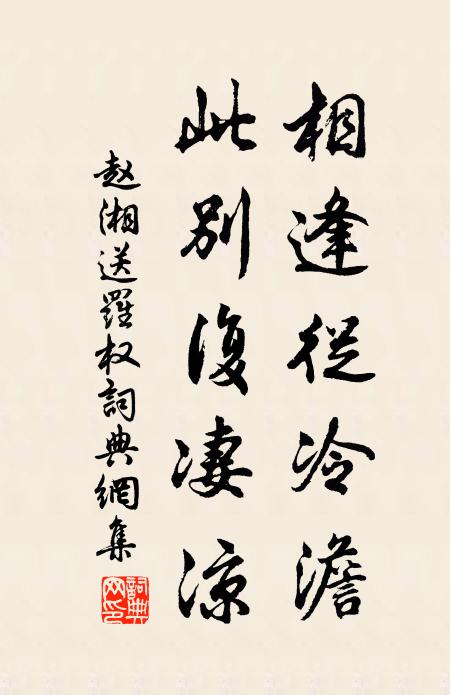 相逢從冷澹
此別復淒涼
赵湘送羅权詞典網集
詞典網印